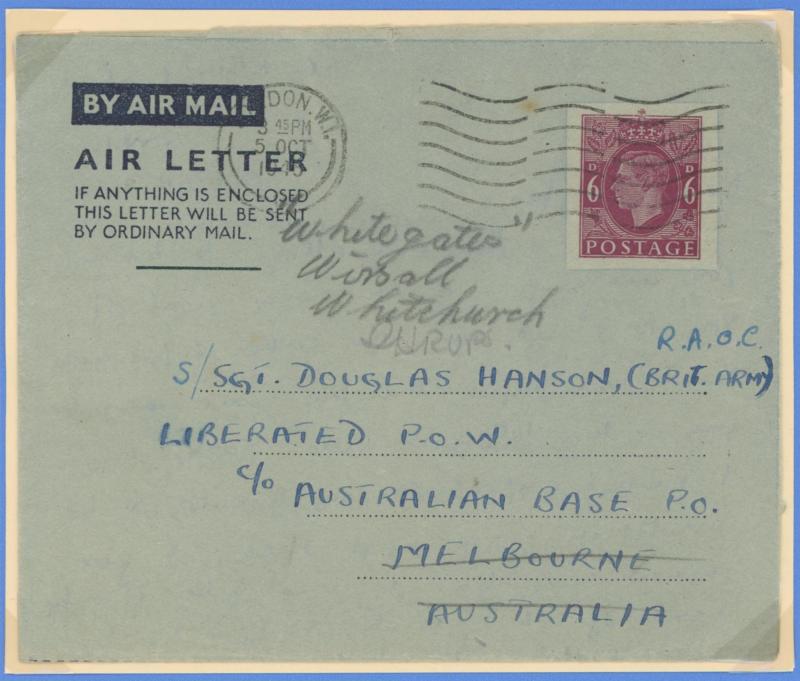 BY AIR MAIL
AIR LETTER
IF ANYTHING IS ENCLOSED
THIS LETTER WILL BE SENT
BY ORDINARY MAIL.
LONDON. W.1.
3 45 PM
5 OCT
1945
D D
6 6
POSTAGE
"Whitegates"
Wirsall
Whitchurch
SHROP.
R.A.O.C.
S/SGT. DOUGLAS HANSON, (BRIT. ARMY)
LIBERATED P.O.W.
c/o AUSTRALIAN BASE P.O.
MELBOURNE
AUSTRALIA